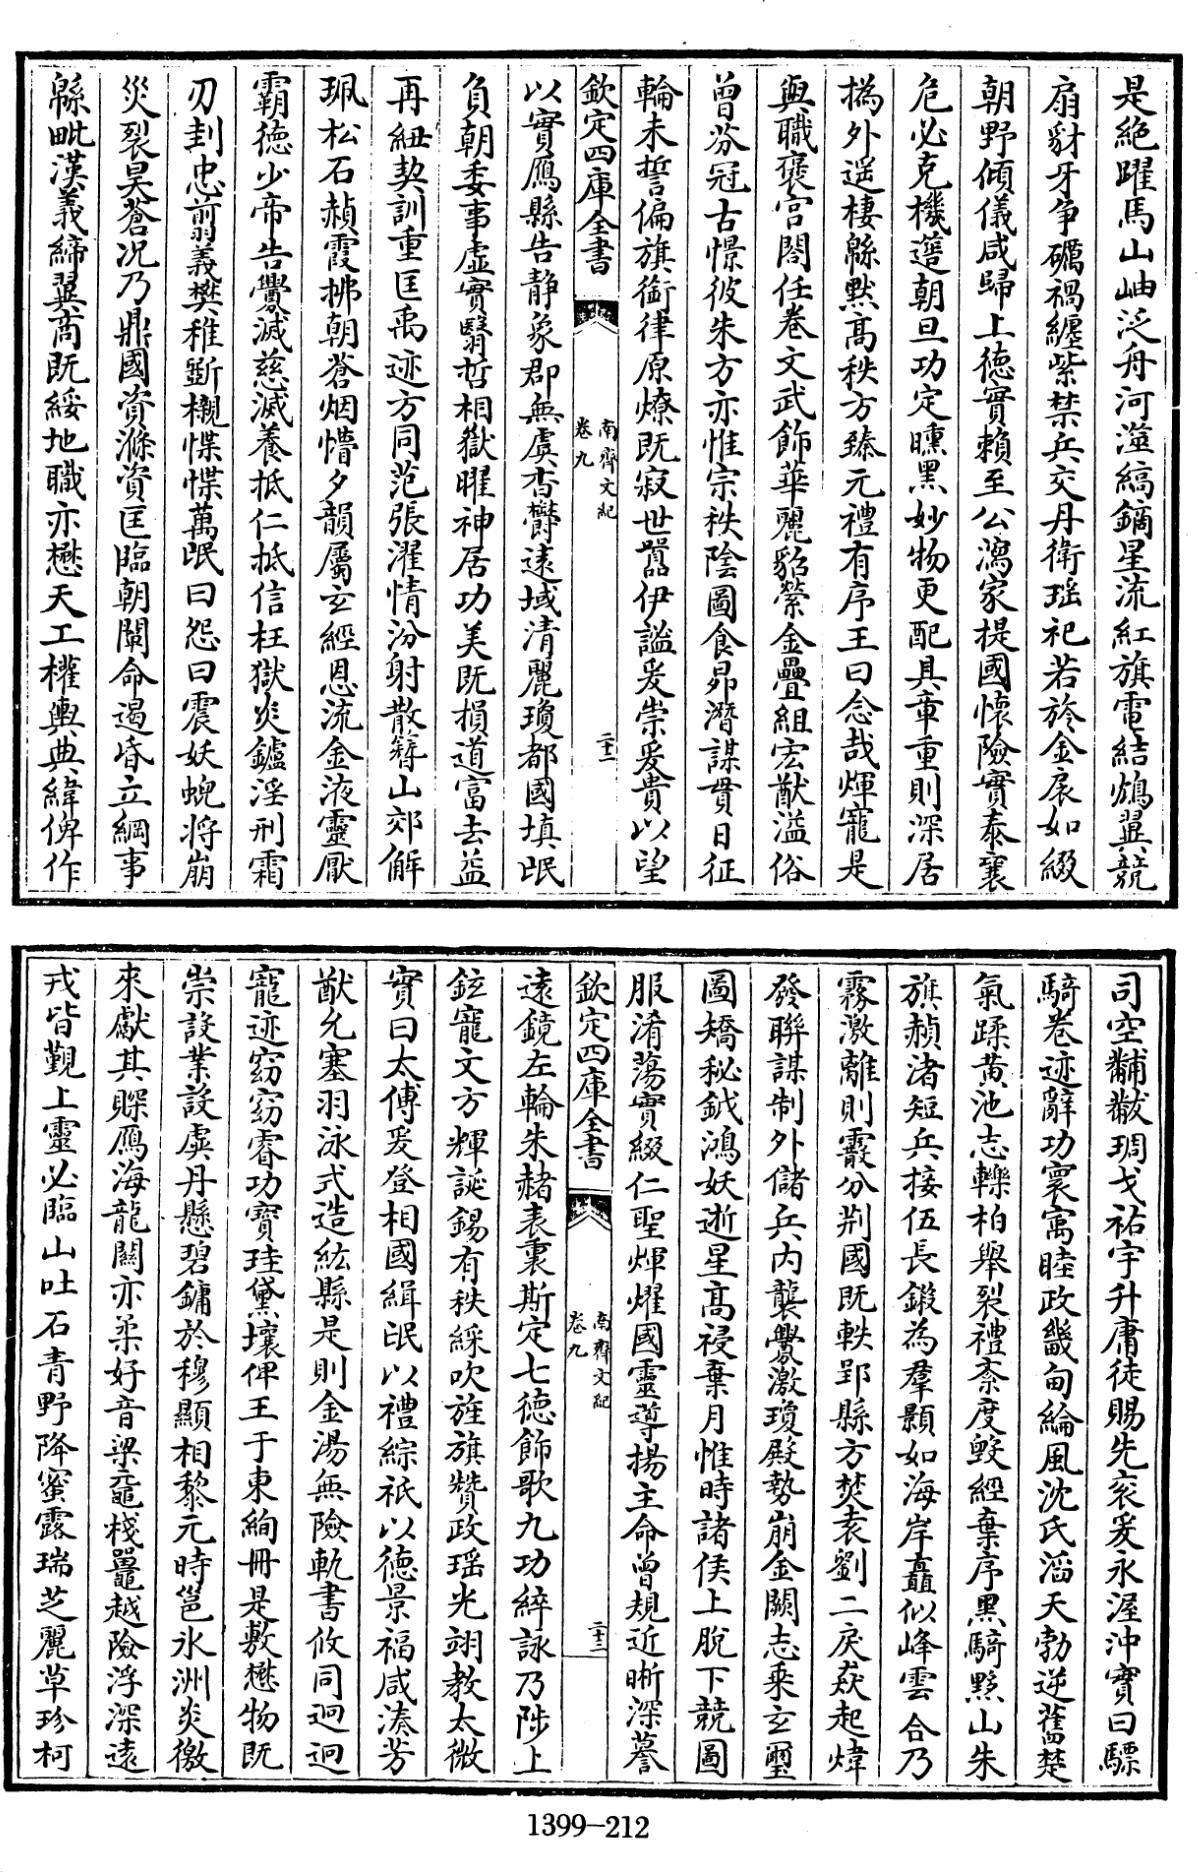 是絶躍馬山岫泛舟河澨縞鏑星流紅旗電結鴆翼競
扇豺牙争礪禍纏紫禁兵交丹衛瑶祀若於金扆如綴
朝野傾儀咸歸上徳實賴至公漓家提國懐險實泰襄
危必克機簉朝旦功定曛黑妙物更配具章重則深居
撝外遥棲緜黙髙秩方臻元禮有序王曰念哉煇寵是
與職褒宫閤任卷文武飾華麗貂縈金疊組宏猷溢俗
曽芬冠古憬彼朱方亦惟宗秩隂圖食昴潜謀貫日征
輪未誓偏旗銜律原燎既寂世囂伊謐爰崇爰貴以望
欽定四庫全書
南齊文紀
卷九
二十二
以實鴈縣告静象郡無虞杳欝遠域清麗瓊都國填氓
負朝委事虚實翳哲相獄曜神居功美既損道富去益
再紐契訓重匡禹迹方同范張濯情汾射散簪山郊解
珮松石赬霞拂朝蒼烟懵夕韻屬玄經恩流金液靈厭
霸徳少帝告釁滅慈滅養抵仁抵信枉獄炎鑪淫刑霜
刃刲忠翦義樊稚斷櫬惵惵萬氓曰怨曰震妖蜺将崩
災裂昊蒼况乃鼎國資滌資匡臨朝闡命遏昏立綱事
緜毗漢義締翼商既綏地職亦懋天工權輿典緯俾作
司空黼黻琱戈祐宇升庸徒賜先衮爰永渥沖實曰驃
騎卷迹辭功寰㝢睦政畿甸綸風沈氏滔天勃逆舊楚
氣蹂黄池志轢柏舉裂禮紊度毁經棄序黑騎黙山朱
旗赬渚短兵接伍長鍛為羣顥如海岸矗似峰雲合乃
霧激離則霰分荆國既軼郢縣方焚袁劉二戾猋起煒
發聯謀制外儲兵内襲釁激瓊殿勢崩金闕志乗玄璽
圖矯秘鉞鴻妖逝星髙祲棄月惟時諸侯上脫下競圖
服淆蕩實綴仁聖煇燿國靈導揚主命曽規近晰深謩
欽定四庫全書
南齊文紀
卷九
二十三
遠鏡左輪朱赭表裏斯定七徳飾歌九功綷詠乃陟上
鉉寵文方輝誕錫有秩綵吹旌旗贊政瑶光翊教太微
實曰太傅爰登相國緝氓以禮綜祇以徳景福咸湊芳
猷允塞羽泳式造紘縣是則金湯無險軌書攸同迥迥
寵迹窈窈睿功寳珪黛壤俾王于東絢冊是敷懋物既
崇設業設虡丹懸碧鏞於穆顯相黎元時邕氷洲炎徼
來獻其賝鴈海龍闗亦柔好音梁鼋棧鼉越險浮深逺
戎皆覲上靈必臨山吐石青野降蜜露瑞芝麗草珍柯
1399-212